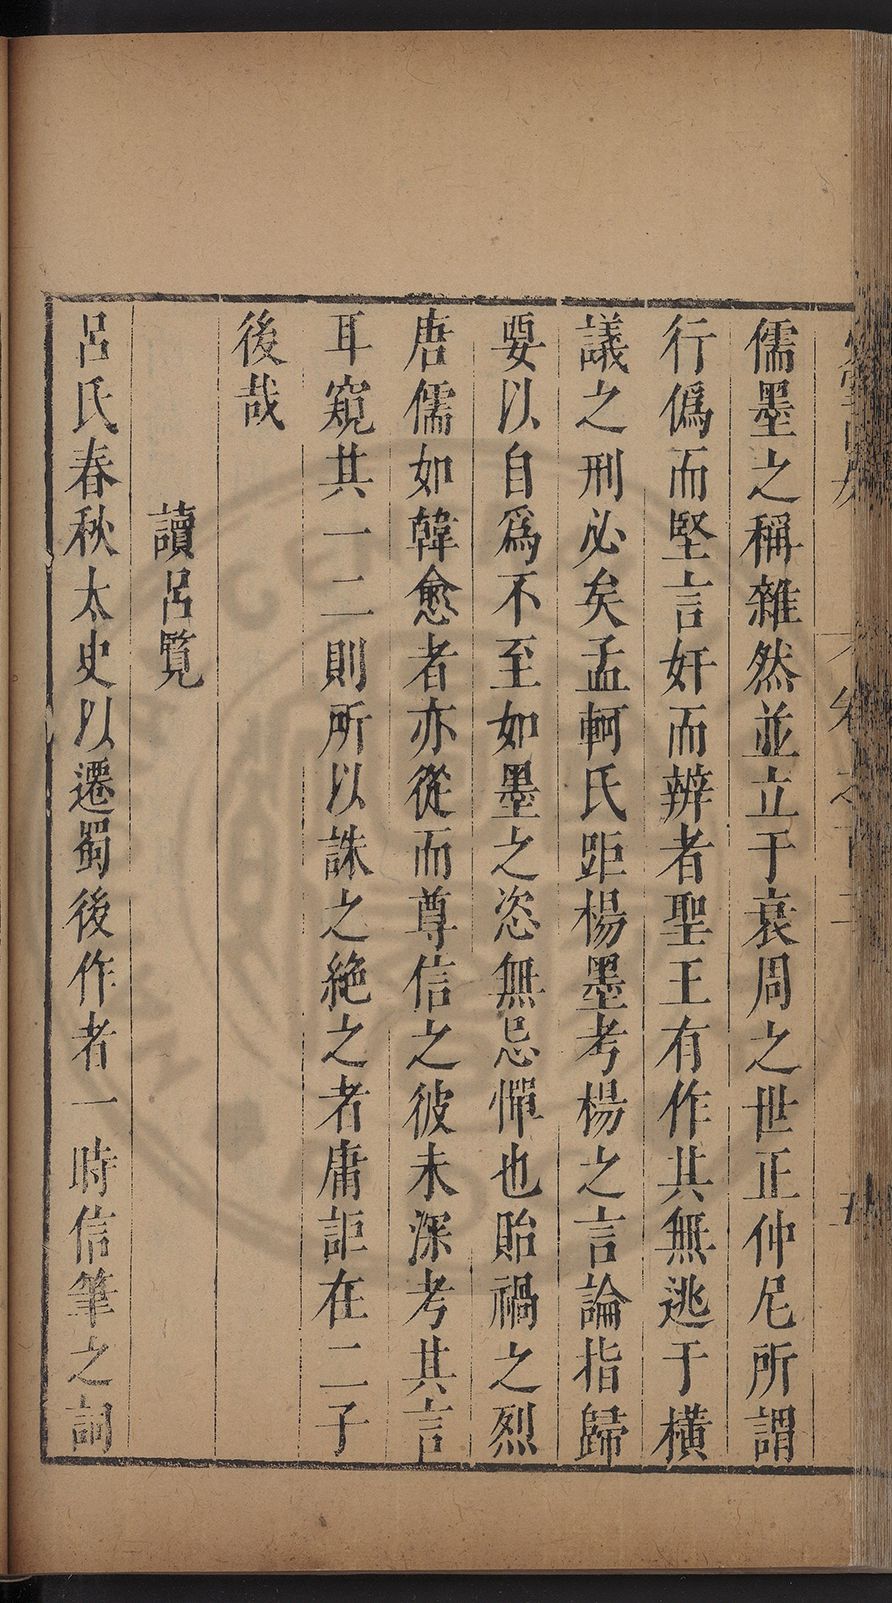 儒墨之稱雜然並立于衰周之世正仲尼所謂
行僞而堅言奸而辨者聖王有作其無逃于橫
議之刑必矣孟軻氏距楊墨考楊之言論指歸
要以自爲不至如墨之恣無忌憚也貽禍之烈
唐儒如韓愈者亦從而尊信之彼未深考其言
耳窺其一二則所以誅之絶之者庸詎在二子
後哉
讀呂覽
呂氏春秋太史以遷蜀後作者一時信筆之詞